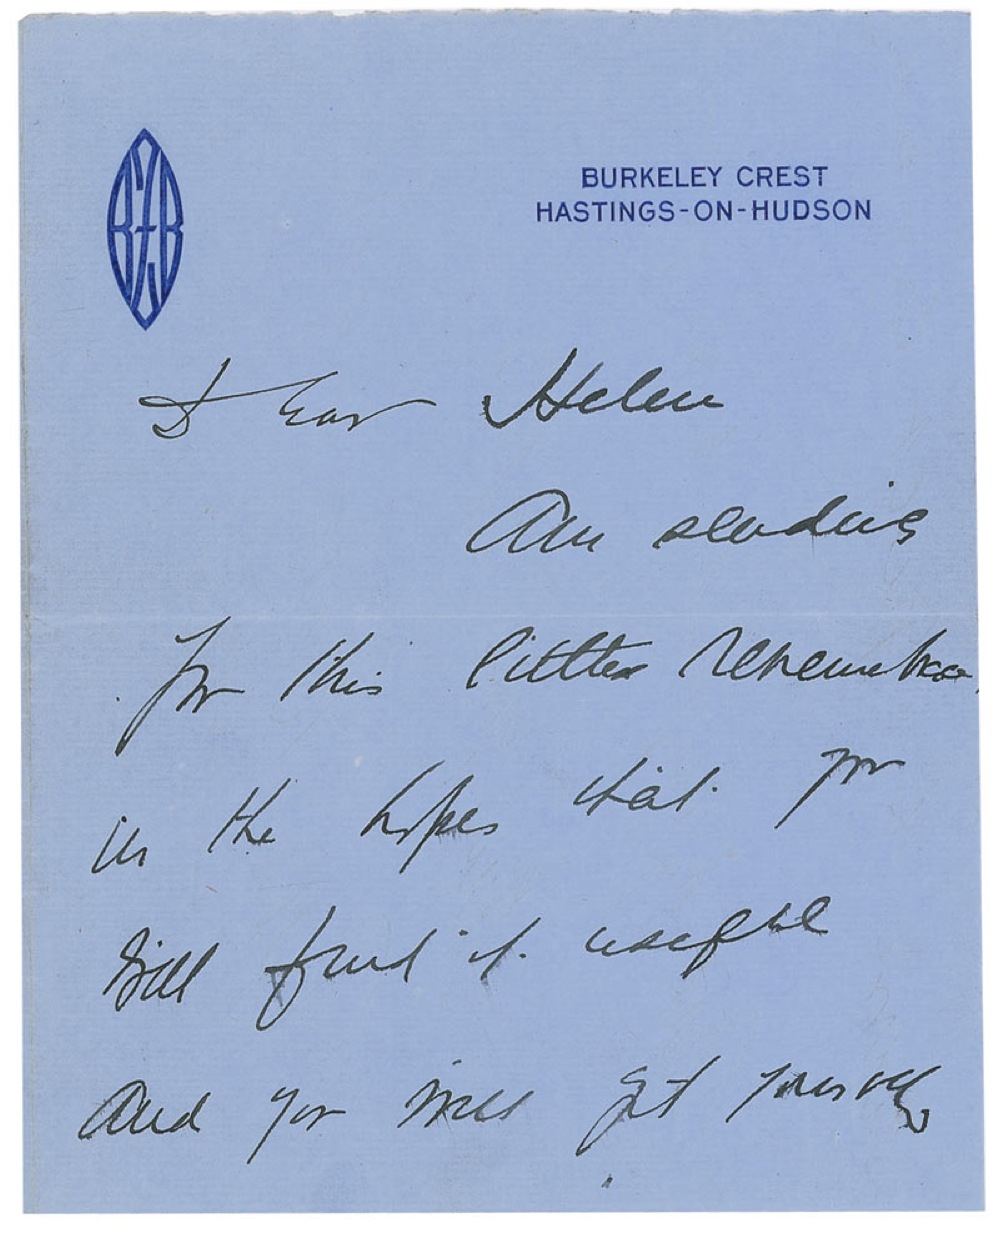 BZB
BURKELEY CREST
HASTINGS-ON-HUDSON
Dear Helen
Am sending
you this little remembrance
in the hopes that you
will find it useful
And you will get yourself